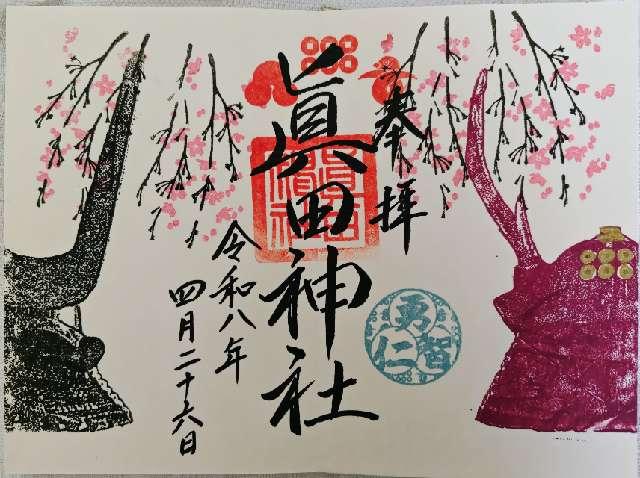 奉拝
眞田神社
眞田神社
令和八年
四月二十六日
勇
智
仁